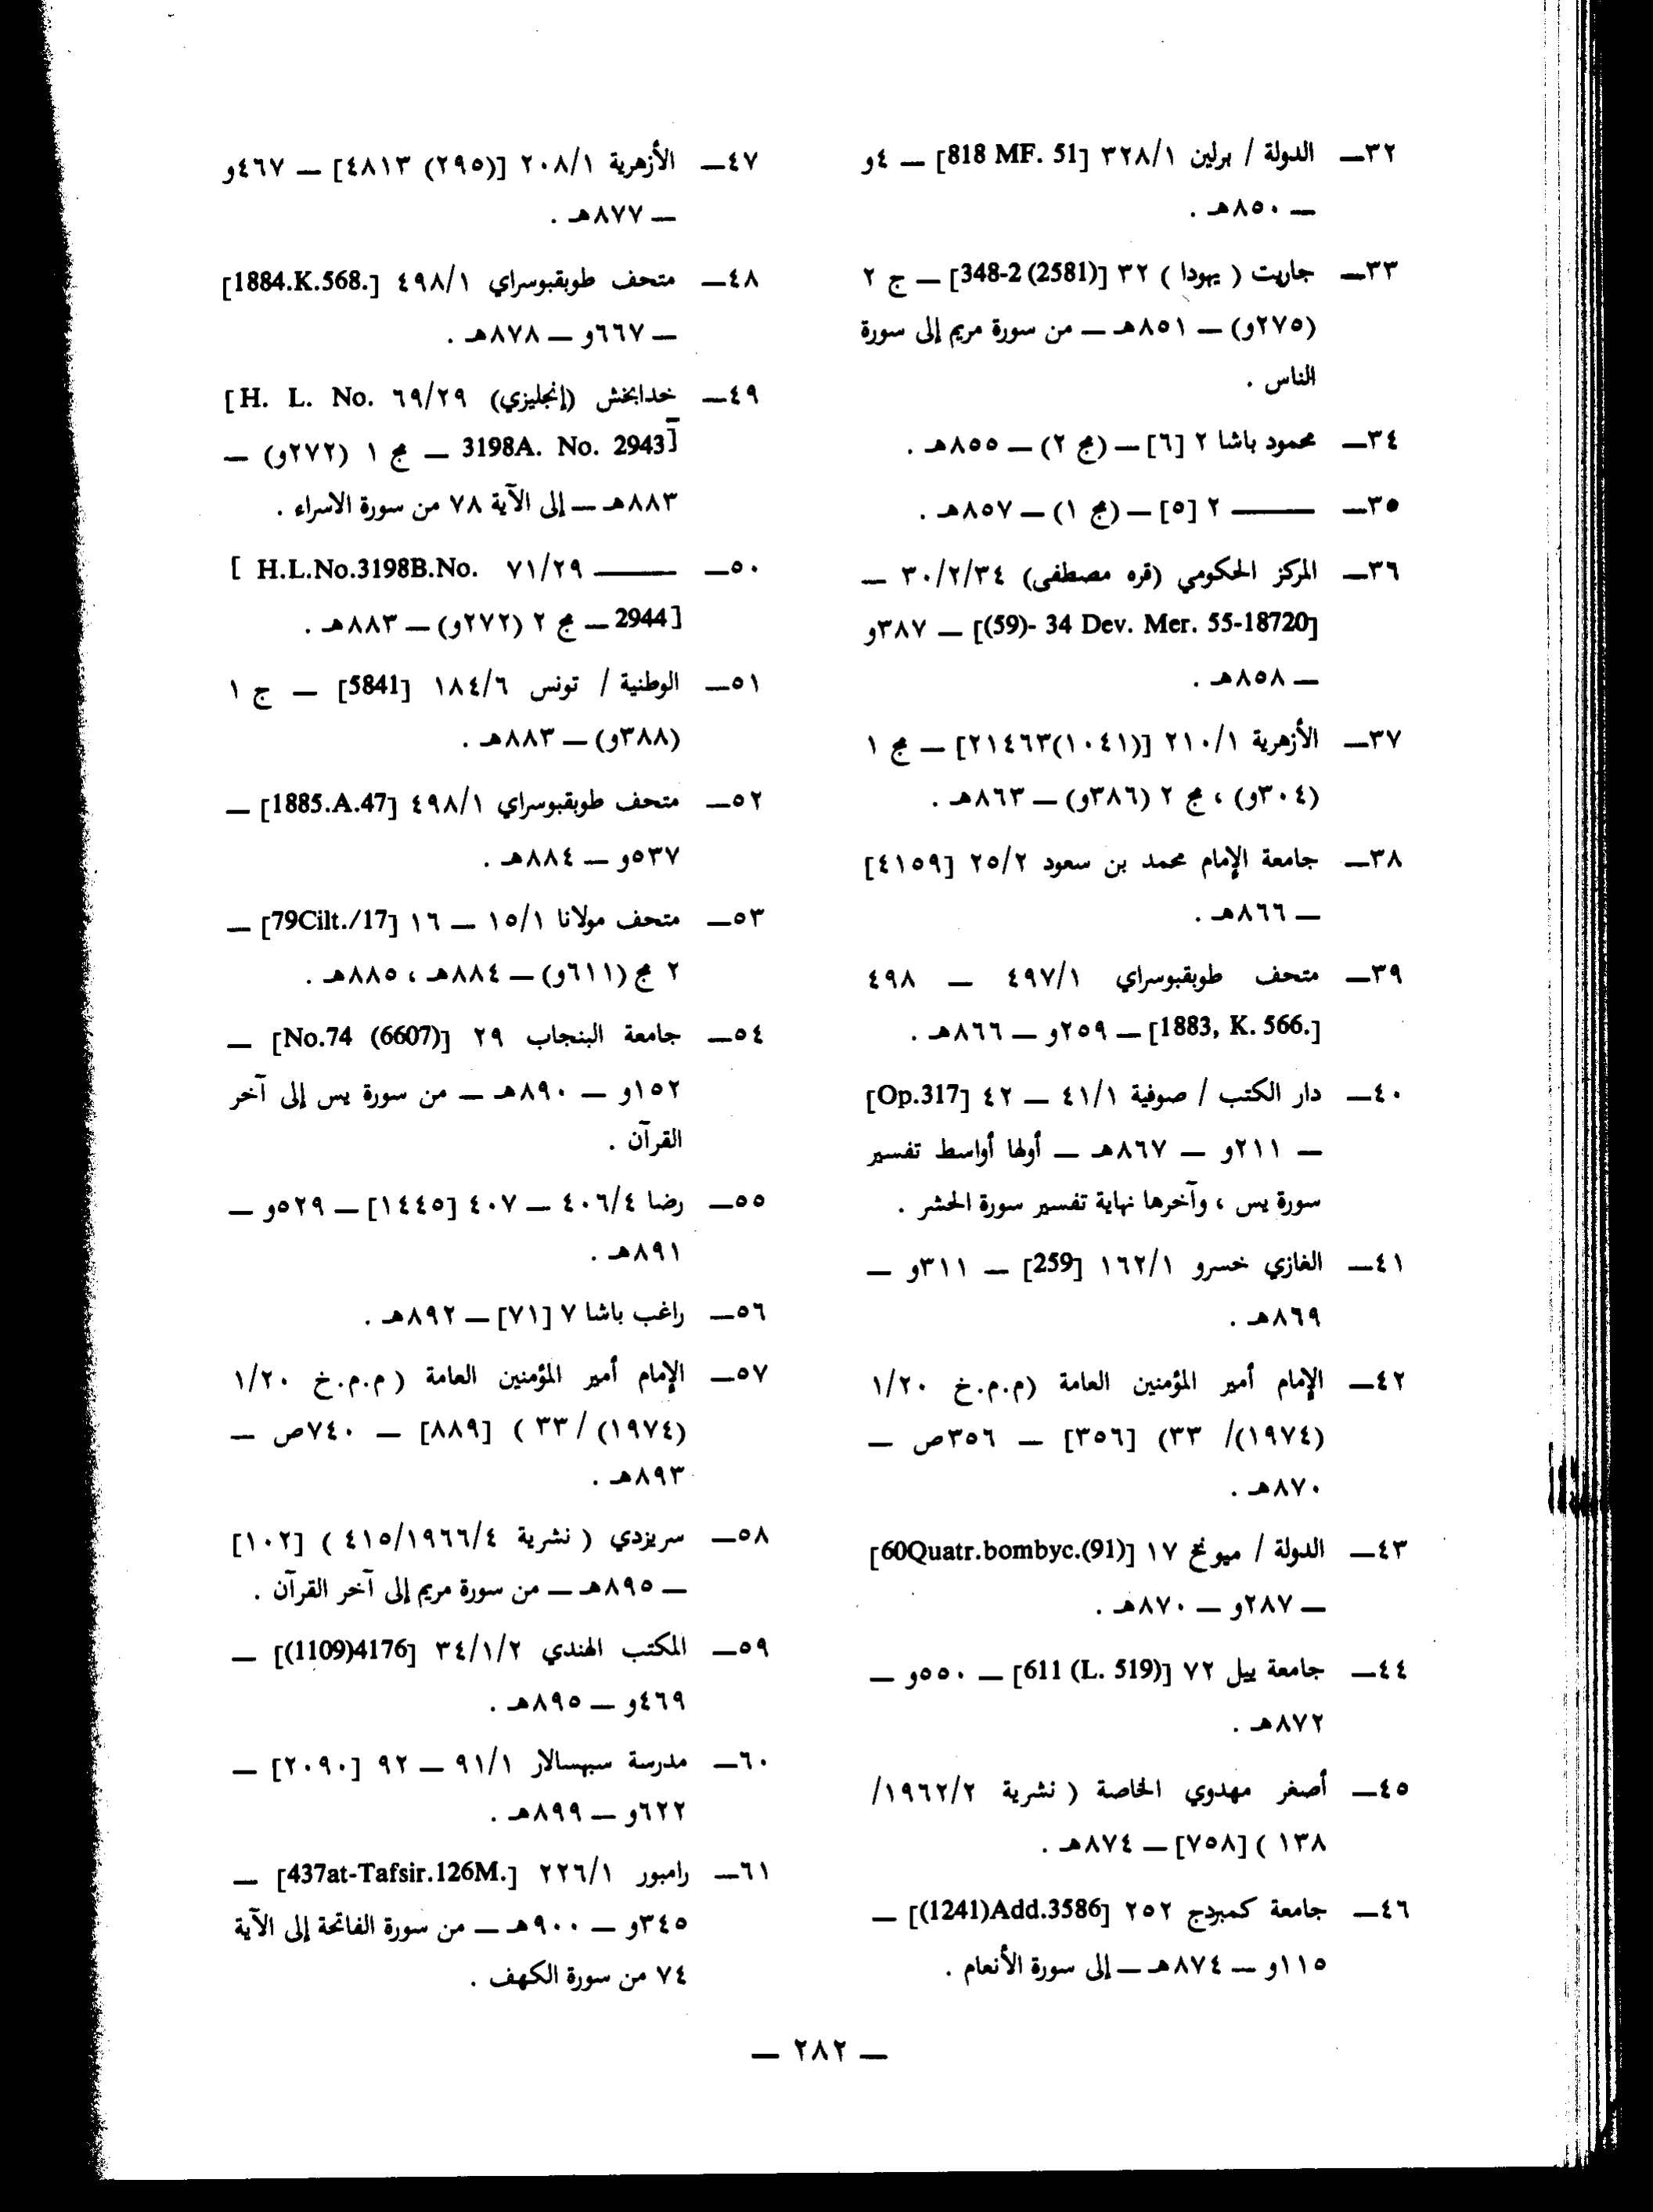 ٣٢ــ الدولة / برلين ٣٢٨/١ [818 MF. 51] ــ ٤و
ــ ٨٥٠هـ .
٣٣ــ جاريت ( يهودا ) ٣٢ [348-2 (2581)] ــ ج ٢
(٢٧٥و) ــ ٨٥١هـ ــ من سورة مريم إلى سورة
الناس .
٣٤ــ محمود باشا ٢ [٦] ــ (مج ٢) ــ ٨٥٥هـ .
٣٥ــ ــــــــ ٢ [٥] ــ (مج ١) ــ ٨٥٧هـ .
٣٦ــ المركز الحكومي (قره مصطفى) ٣٠/٢/٣٤ ــ
[(59)- 34 Dev. Mer. 55-18720] ــ ٣٨٧و
ــ ٨٥٨هـ .
٣٧ــ الأزهرية ٢١٠/١ [(١٠٤١)٢١٤٦٣] ــ مج ١
(٣٠٤و) ، مج ٢ (٣٨٦و) ــ ٨٦٣هـ .
٣٨ــ جامعة الإمام محمد بن سعود ٢٥/٢ [٤١٥٩]
ــ ٨٦٦هـ .
٣٩ــ متحف طوبقبوسراي ٤٩٧/١ ــ ٤٩٨
[1883, K. 566.] ــ ٢٥٩و ــ ٨٦٦هـ .
٤٠ــ دار الكتب / صوفية ٤١/١ ــ ٤٢ [Op.317]
ــ ٢١١و ــ ٨٦٧هـ ــ أولها أواسط تفسير
سورة يس ، وآخرها نهاية تفسير سورة الحشر .
٤١ــ الغازي خسرو ١٦٢/١ [259] ــ ٣١١و ــ
٨٦٩هـ .
٤٢ــ الإمام أمير المؤمنين العامة (م.م.خ ١/٢٠
(١٩٧٤)/ ٣٣) [٣٥٦] ــ ٣٥٦ص ــ
٨٧٠هـ .
٤٣ــ الدولة / ميونخ ١٧ [60Quatr.bombyc.(91)]
ــ ٢٨٧و ــ ٨٧٠هـ .
٤٤ــ جامعة ييل ٧٢ [611 (L. 519)] ــ ٥٥٠و ــ
٨٧٢هـ .
٤٥ــ أصغر مهدوي الخاصة ( نشرية ١٩٦٢/٢/
١٣٨ ) [٧٥٨] ــ ٨٧٤هـ .
٤٦ــ جامعة كمبردج ٢٥٢ [(1241)Add.3586] ــ
١١٥و ــ ٨٧٤هـ ــ إلى سورة الأنعام .
٤٧ــ الأزهرية ٢٠٨/١ [(٢٩٥) ٤٨١٣] ــ ٤٦٧و
ــ ٨٧٧هـ .
٤٨ــ متحف طوبقبوسراي ٤٩٨/١ [1884.K.568.]
ــ ٦٦٧و ــ ٨٧٨هـ .
٤٩ــ خدابخش (إنجليزي) ٦٩/٢٩ [H. L. No.
3198A. No. 2943] ــ مج ١ (٢٧٢و) ــ
٨٨٣هـ ــ إلى الآية ٧٨ من سورة الاسراء .
٥٠ــ ــــــــ ٧١/٢٩ [ H.L.No.3198B.No.
2944] ــ مج ٢ (٢٧٢و) ــ ٨٨٣هـ .
٥١ــ الوطنية / تونس ١٨٤/٦ [5841] ــ ج ١
(٣٨٨و) ــ ٨٨٣هـ .
٥٢ــ متحف طوبقبوسراي ٤٩٨/١ [1885.A.47] ــ
٥٣٧و ــ ٨٨٤هـ .
٥٣ــ متحف مولانا ١٥/١ ــ ١٦ [79Cilt./17] ــ
٢ مج (٦١١و) ــ ٨٨٤هـ ، ٨٨٥هـ .
٥٤ــ جامعة البنجاب ٢٩ [No.74 (6607)] ــ
١٥٢و ــ ٨٩٠هـ ــ من سورة يس إلى آخر
القرآن .
٥٥ــ رضا ٤٠٦/٤ ــ ٤٠٧ [١٤٤٥] ــ ٥٢٩و ــ
٨٩١هـ .
٥٦ــ راغب باشا ٧ [٧١] ــ ٨٩٢هـ .
٥٧ــ الإمام أمير المؤمنين العامة ( م.م.خ ١/٢٠
(١٩٧٤) / ٣٣ ) [٨٨٩] ــ ٧٤٠ص ــ
٨٩٣هـ .
٥٨ــ سريزدي ( نشرية ٤١٥/١٩٦٦/٤ ) [١٠٢]
ــ ٨٩٥هـ ــ من سورة مريم إلى آخر القرآن .
٥٩ــ المكتب الهندي ٣٤/١/٢ [(1109)4176] ــ
٤٦٩و ــ ٨٩٥هـ .
٦٠ــ مدرسة سپهسالار ٩١/١ ــ ٩٢ [٢٠٩٠] ــ
٦٢٢و ــ ٨٩٩هـ .
٦١ــ رامبور ٢٢٦/١ [437at-Tafsir.126M.] ــ
٣٤٥و ــ ٩٠٠هـ ــ من سورة الفاتحة إلى الآية
٧٤ من سورة الكهف .
ــ ٢٨٢ ــ